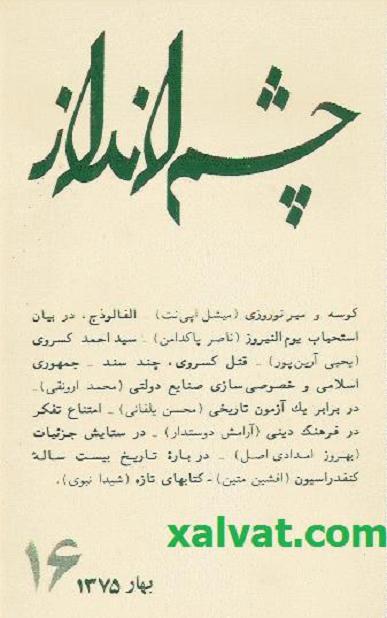 چشم‌انداز
کوسه و میر نوروزی (میشل اپی‌نت) ـ الفالوذج، در بیان
استحباب یوم النیروز (ناصر پاکدامن) ـ سید احمد کسروی
(یحیی آرین‌پور) ـ قتل کسروی، چند سند ـ جمهوری
اسلامی و خصوصی‌سازی صنایع دولتی (محمد ارونقی) ـ
در برابر یك آزمون تاریخی (محسن یلفانی) ـ امتناع تفکر
در فرهنگ دینی (آرامش دوستدار) ـ در ستایش جزئیات
(بهروز امدادی اصل) ـ دربارهٔ تاریخ بیست سالهٔ
کنفدراسیون (افشین متین) ـ کتابهای تازه (شیدا نبوی).
xalvat.com
۱۶
بهار ۱۳۷۵